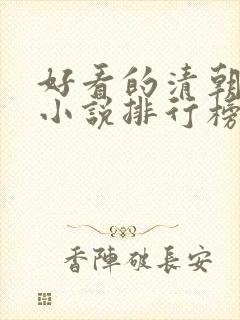 好看的清朝
小说排行榜
香陣破長安